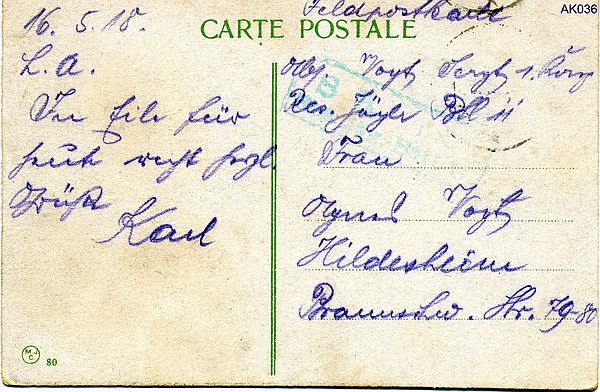 Feldpostkarte
AK036
CARTE POSTALE
16. 5. 18.
L. A.
In Eile für
heute recht herzl.
Grüße
Karl
Abs. Vogt
Res. Jäger Btl 11
Frau
Agnes Vogt
Hildesheim
Braunschw. Str. 79-80
M.J.
C
80